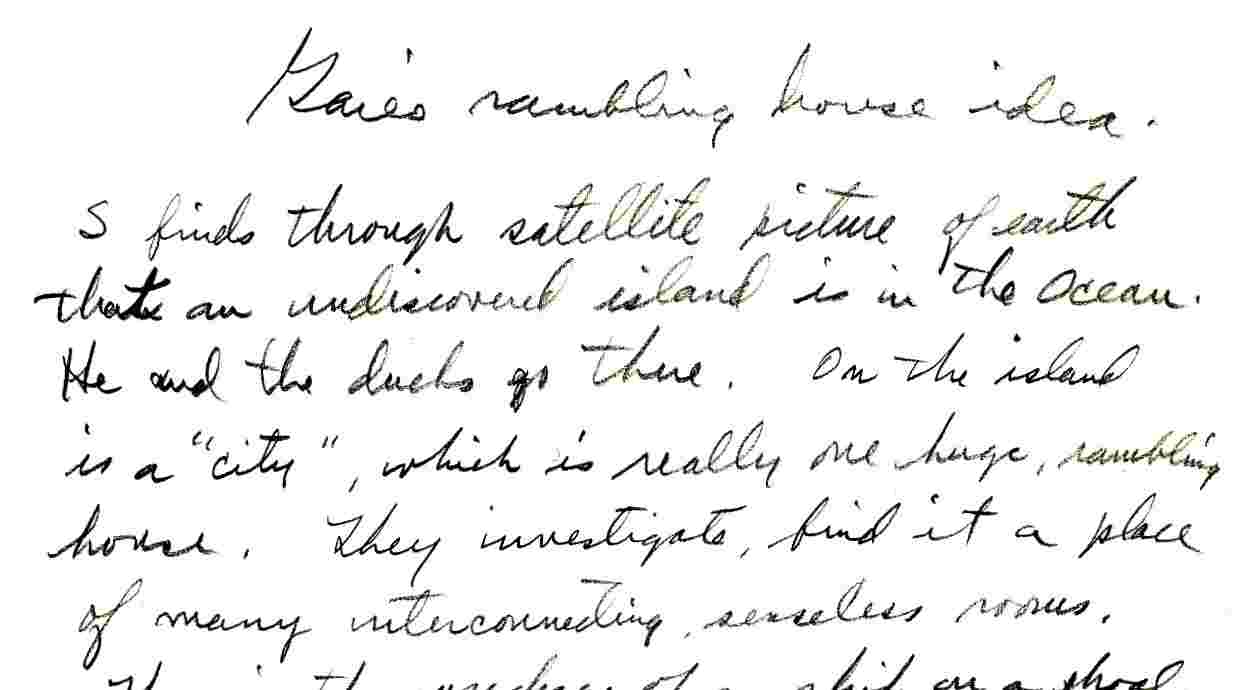 Garé's rambling house idea.
S finds through satellite picture of earth
that an undiscovered island is in the ocean.
He and the ducks go there. On the island
is a "city", which is really one huge, rambling
house. They investigate, find it a place
of many interconnecting, senseless rooms.
of a ship on a shoal